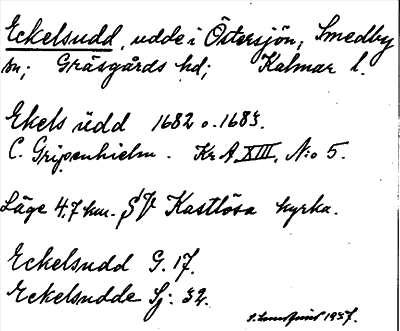 Eckelsudd, udde i Östersjön, Smedby
sn; Gräsgårds hd; Kalmar l.
Ekels üdd 1682 o. 1683.
C. Gripenhielm. Kr A XIII, N:o 5.
Läge 4,7 km. SV Kastlösa kyrka.
Eckelsudd G. 17.
Eckelsudde Sj: 32.
1937.